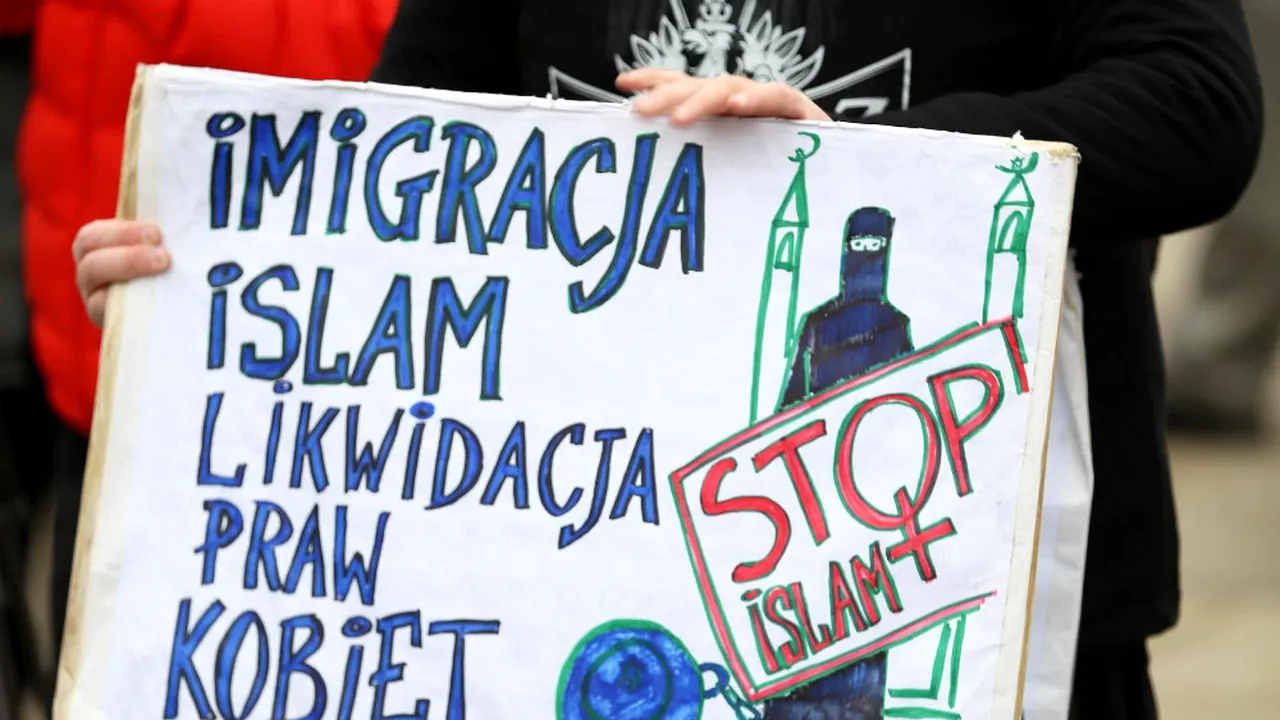 iMiGRACJA
iSLAM
LiKWiDACJA
PRAW
KOBiET
STOP
iSLAM